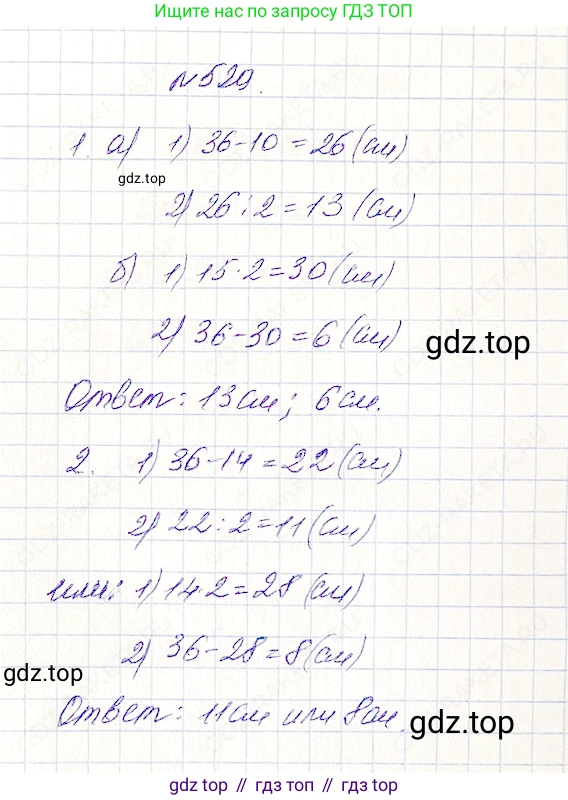 Еще больше готовых заданий у нас по запросу ГДЗ ТОП
№529.
1. а) 1) 36-10=26(см)
gdz.top
2) 26:2=13(см)
б) 1) 15·2=30(см)
2) 36-30=6(см)
gdz.top
Ответ: 13см; 6см.
2. 1) 36-14=22(см)
2) 22:2=11(см)
или: 1) 14·2=28(см)
2) 36-28=8(см)
gdz.top
Ответ: 11см или 8см.
gdz.top
gdz.top // гдз.топ // гдз.топ // gdz.top